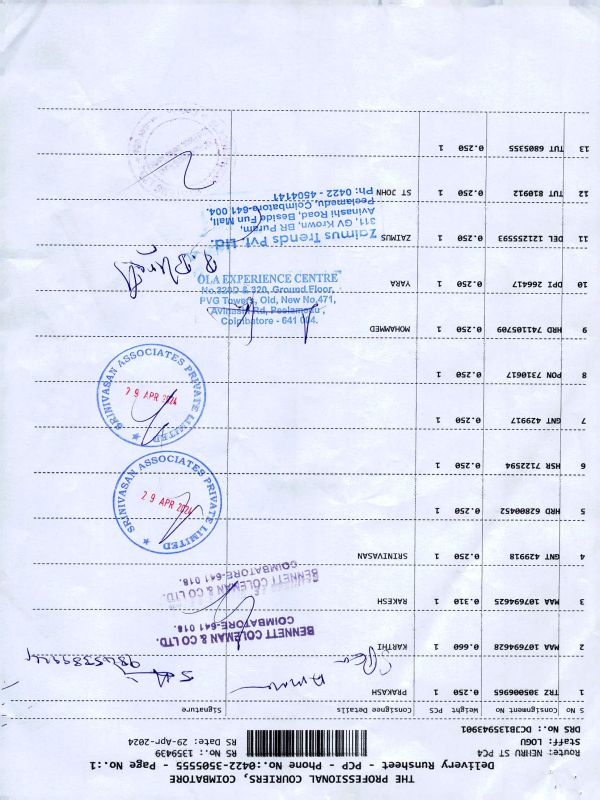 THE PROFESSIONAL COURIERS, COIMBATORE
Delivery Runsheet - PCP - Phone No.:0422-3505555 - Page No.:1
Route: NEHRU ST PC4 RS No.: 1359439
Staff: LOGU RS Date: 29-Apr-2024
DRS No.: DC3B135943901
S No Consignment No Weight PCS Consignee Details Signature
1 TRZ 305006965 0.250 1 PRAKASH
2 MAA 107694628 0.660 1 KARTHI
BENNETT COLEMAN & CO LTD.
COIMBATORE-641 018.
3 MAA 107694625 0.310 1 RAKESH
BENNETT COLEMAN & CO LTD.
COIMBATORE-641 018.
4 GNT 429918 0.250 1 SRINIVASAN
5 HRD 62800452 0.250 1
SRINIVASAN ASSOCIATES PRIVATE LIMITED
29 APR 2024
6 HSR 7122594 0.250 1
7 GNT 429917 0.250 1
SRINIVASAN ASSOCIATES PRIVATE LIMITED
29 APR 2024
8 PON 7310617 0.250 1
9 HRD 741105709 0.250 1 MOHAMMED
OLA EXPERIENCE CENTRE
No.328D & 320, Ground Floor,
PVG Towers, Old, New No.471,
Avinashi Rd, Peelamedu,
Coimbatore - 641 004.
10 DPI 266417 0.250 1 YARA
11 DEL 121255593 0.250 1 ZAIMUS
Zaimus Trends Pvt. Ltd.
311, GV Krown, BR Puram,
Avinashi Road, Beside Fun Mall,
Peelamedu, Coimbatore-641 004.
Ph: 0422 - 4504141
12 TUT 810912 0.250 1 ST JOHN
13 TUT 6805355 0.250 1